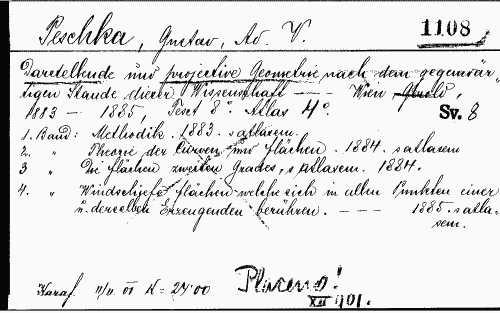 Peschka, Gustav, Ad. V. 1108
Darstellende und projective Geometrie nach dem gegenwär-
tigen Stande dieser Wissenschaft --- Wien
1883 - 1885, Text 8° Atlas 4°. Sv. 8
1. Band: Methodik. 1883. s atlasem.
2. " Theorie der Curven und Flächen. 1884. s atlasem
3 " Die Flächen zweiten Grades, s atlasem. 1884.
4. " Windschiefe Flächen welche sich in allen Punkten einer
u. derselben Erzeugenden berühren. --- 1885. s atla-
sem.
11/V. 01 K = 24.00 Placeno!
XII 901.